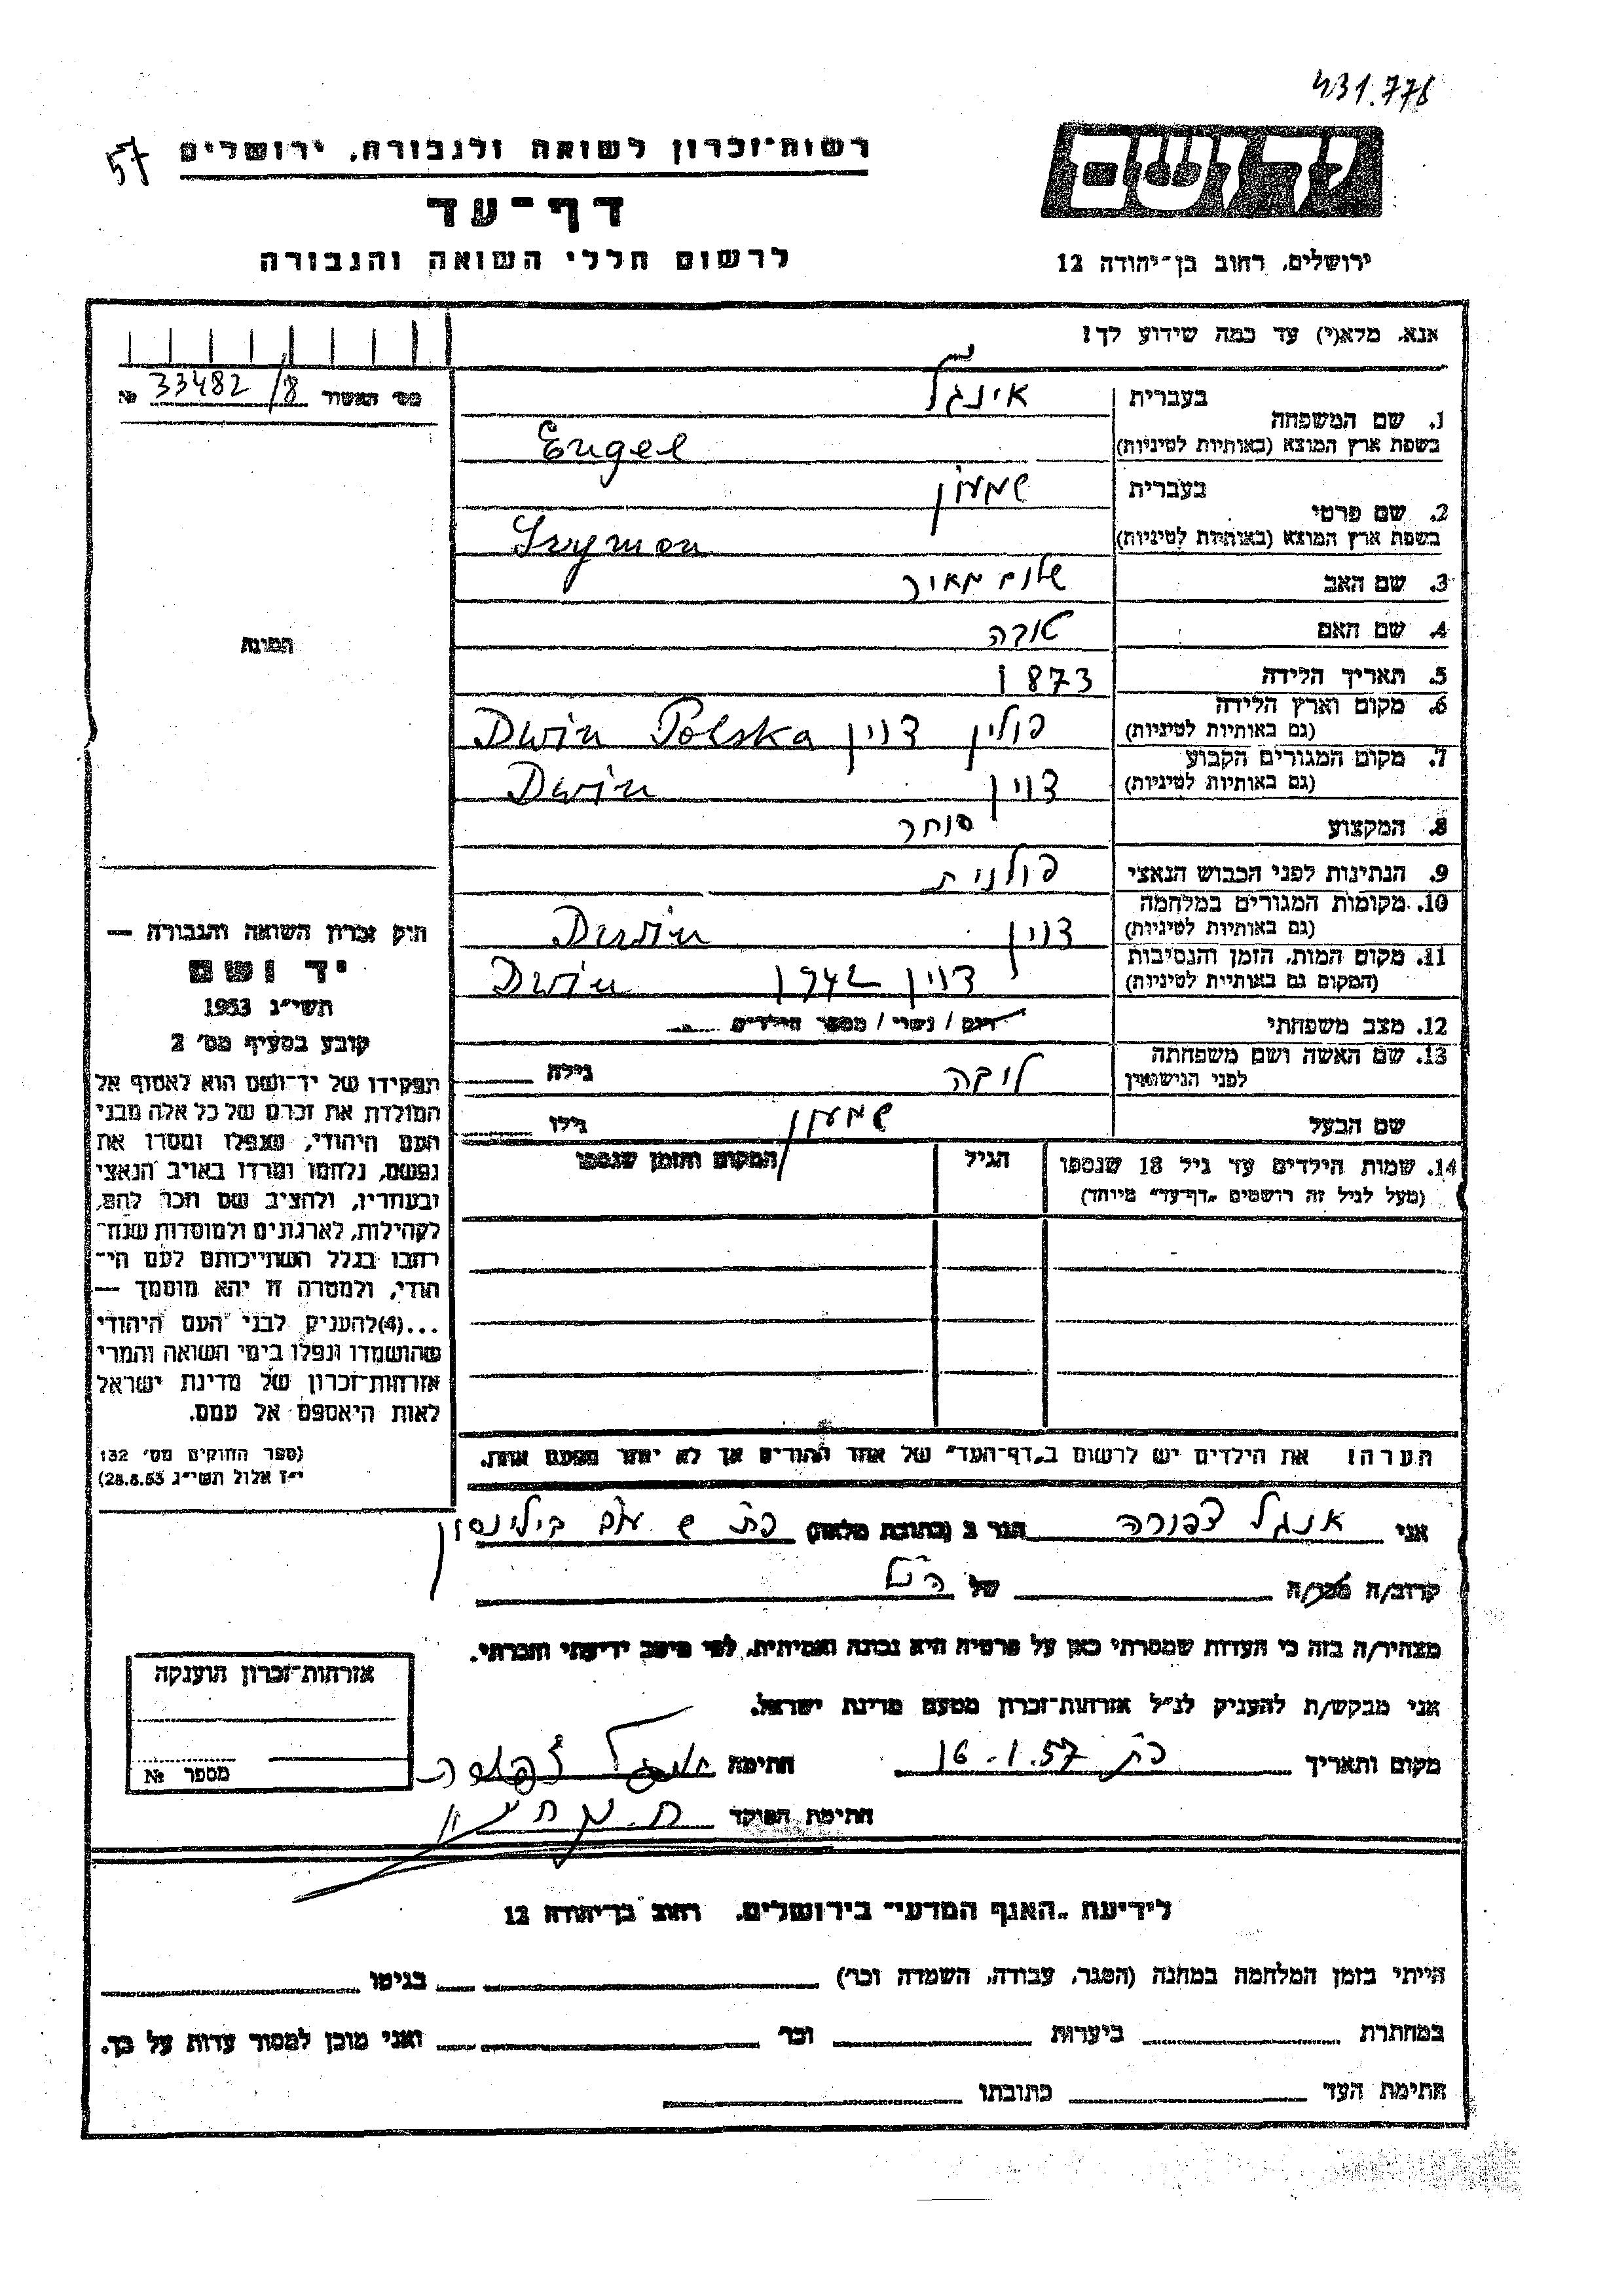 431.778
57
רשות־זכרון לשואה ולגבורה, ירושלים
דף־עד
לרשום חללי השואה והגבורה
יד ושם
ירושלים, רחוב בן־יהודה 12
אנא, מלא(י) עד כמה שידוע לך!
מס׳ האשור № 33482/8
1. שם המשפחה בעברית אינגל
בשפת ארץ המוצא (באותיות לטיניות) Engel
2. שם פרטי בעברית שמעון
בשפת ארץ המוצא (באותיות לטיניות) Szymon
3. שם האב שלום מאיר
4. שם האם טובה
5. תאריך הלידה 1873
6. מקום וארץ הלידה (גם באותיות לטיניות) פולין דוין Dwin Polska
7. מקום המגורים הקבוע (גם באותיות לטיניות) דוין Dwin
8. המקצוע סוחר
9. הנתינות לפני הכבוש הנאצי פולנית
10. מקומות המגורים במלחמה (גם באותיות לטיניות) דוין Dwin
11. מקום המות, הזמן והנסיבות (המקום גם באותיות לטיניות) דוין 1942 Dwin
12. מצב משפחתי / נשוי / מספר הילדים
13. שם האשה ושם משפחתה לפני הנישואין גילה
שם הבעל שמעון גילו
14. שמות הילדים עד גיל 18 שנספו
(מעל לגיל זה רושמים „דף־עד״ מיוחד)
הגיל
המקום והזמן שנספו
הערה! את הילדים יש לרשום ב„דף־העד״ של אחד ההורים אך לא יותר מפעם אחת.
התמונה
חוק זכרון השואה והגבורה —
יד ושם
תשי״ג 1953
קובע בסעיף מס׳ 2
תפקידו של יד־ושם הוא לאסוף אל
המולדת את זכרם של כל אלה מבני
העם היהודי, שנפלו ומסרו את
נפשם, נלחמו ומרדו באויב הנאצי
ובעוזריו, ולהציב שם וזכר להם,
לקהילות, לארגונים ולמוסדות שנח־
רבו בגלל השתייכותם לעם הי־
הודי, ולמטרה זו יהא מוסמך —
...(4)להעניק לבני העם היהודי
שהושמדו ונפלו בימי השואה והמרי
אזרחות־זכרון של מדינת ישראל
לאות היאספם אל עמם.
(ספר החוקים מס׳ 132
י״ז אלול תשי״ג 28.8.53)
אני אנגל צפורה הגר ב (כתובת מלאה) פת ש עם בילינסון
קרוב/ה מכר/ה של
מצהיר/ה בזה כי העדות שמסרתי כאן על פרטיה היא נכונה ואמיתית, לפי מיטב ידיעתי והכרתי.
אני מבקש/ת להעניק לנ״ל אזרחות־זכרון מטעם מדינת ישראל.
מקום ותאריך פת 16.1.57 חתימה אנגל צפורה
חתימת הפוקד
אזרחות־זכרון הוענקה
מספר №
לידיעת „האגף המדעי״ בירושלים, רחוב בן־יהודה 12
הייתי בזמן המלחמה במחנה (הסגר, עבודה, השמדה וכו׳) בגיטו
במחתרת ביערות וכו׳ ואני מוכן למסור עדות על כך.
חתימת העד כתובתו